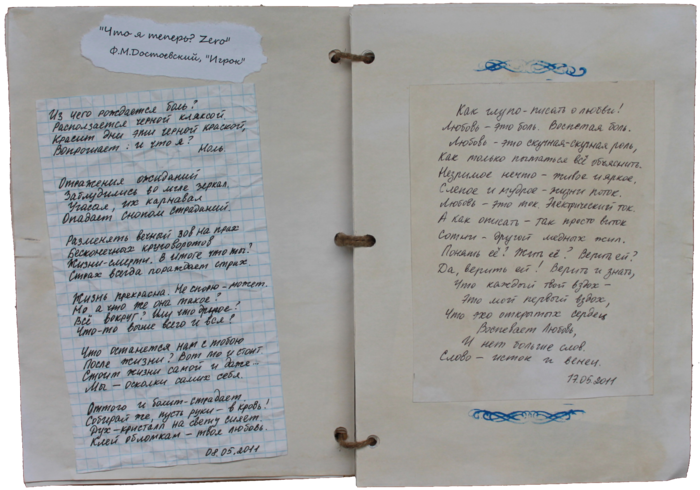 "Что я теперь? Zero"
Ф.М.Достоевский, "Игрок"
Из чего рождается боль?
Расползается черной кляксой.
Красит дни эти черной краской,
Вопрошает: и что я?
Ноль.
Отражения ожиданий
Заблудились во мгле зеркал.
Угасая, их карнавал
Опадает снопом страданий.
Разменять вечной зов на прах
Бесконечных круговоротов
Жизни-смерти. В итоге что ты?
Страх всегда порождает страх
Жизнь прекрасна. Не спорю - может.
Но, а что же она такое?
Всё вокруг? Или что другое?
Что-то выше всего и вся?
Что останется нам с тобою
После жизни? Вот то и стоит.
Стоит жизни самой и даже -
Мы - осколки самих себя.
Оттого и болит-страдает.
Собирай же, пусть руки - в кровь!
Дух-кристалл на свету сияет.
Клей обломкам - твоя любовь.
08.05.2011
Как глупо - писать о любви!
Любовь - это боль. Воспетая боль.
Любовь - это скучная-скучная роль,
Как только пытаться всё объяснить.
Незримое нечто - живое и яркое,
Слепое и мудрое - жизни поток.
Любовь - это ток. Электрический ток.
А как описать - так просто виток
Сотни - другой медных жил.
Понять её! Жить её? Верить ей?
Да, верить ей! Верить и знать,
Что каждый твой вздох -
Это мой первый вздох,
Что эхо открытых сердец
Воспевает Любовь,
И нет больше слов.
Слово - исток и венец.
17.05.2011